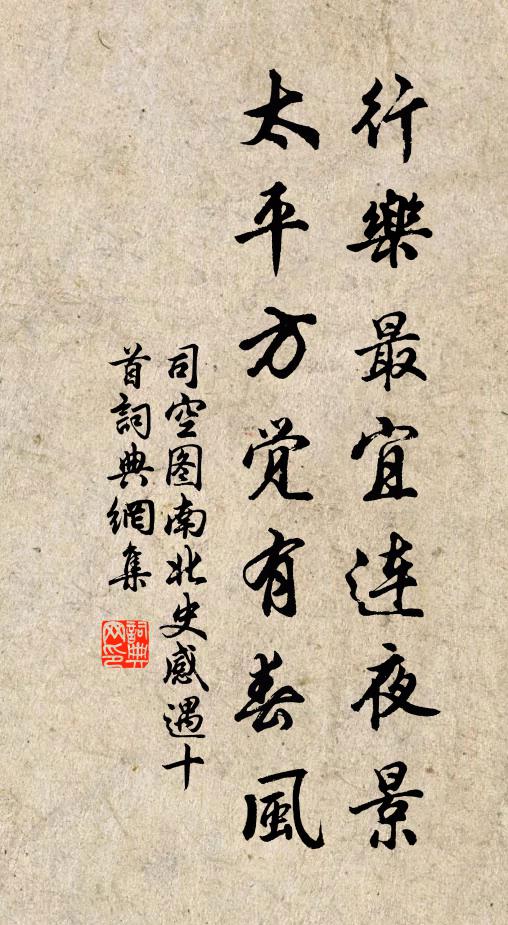 行樂最宜连夜景
太平方覺有春風
司空图南北史感遇十
首詞典網集
詞典
网印